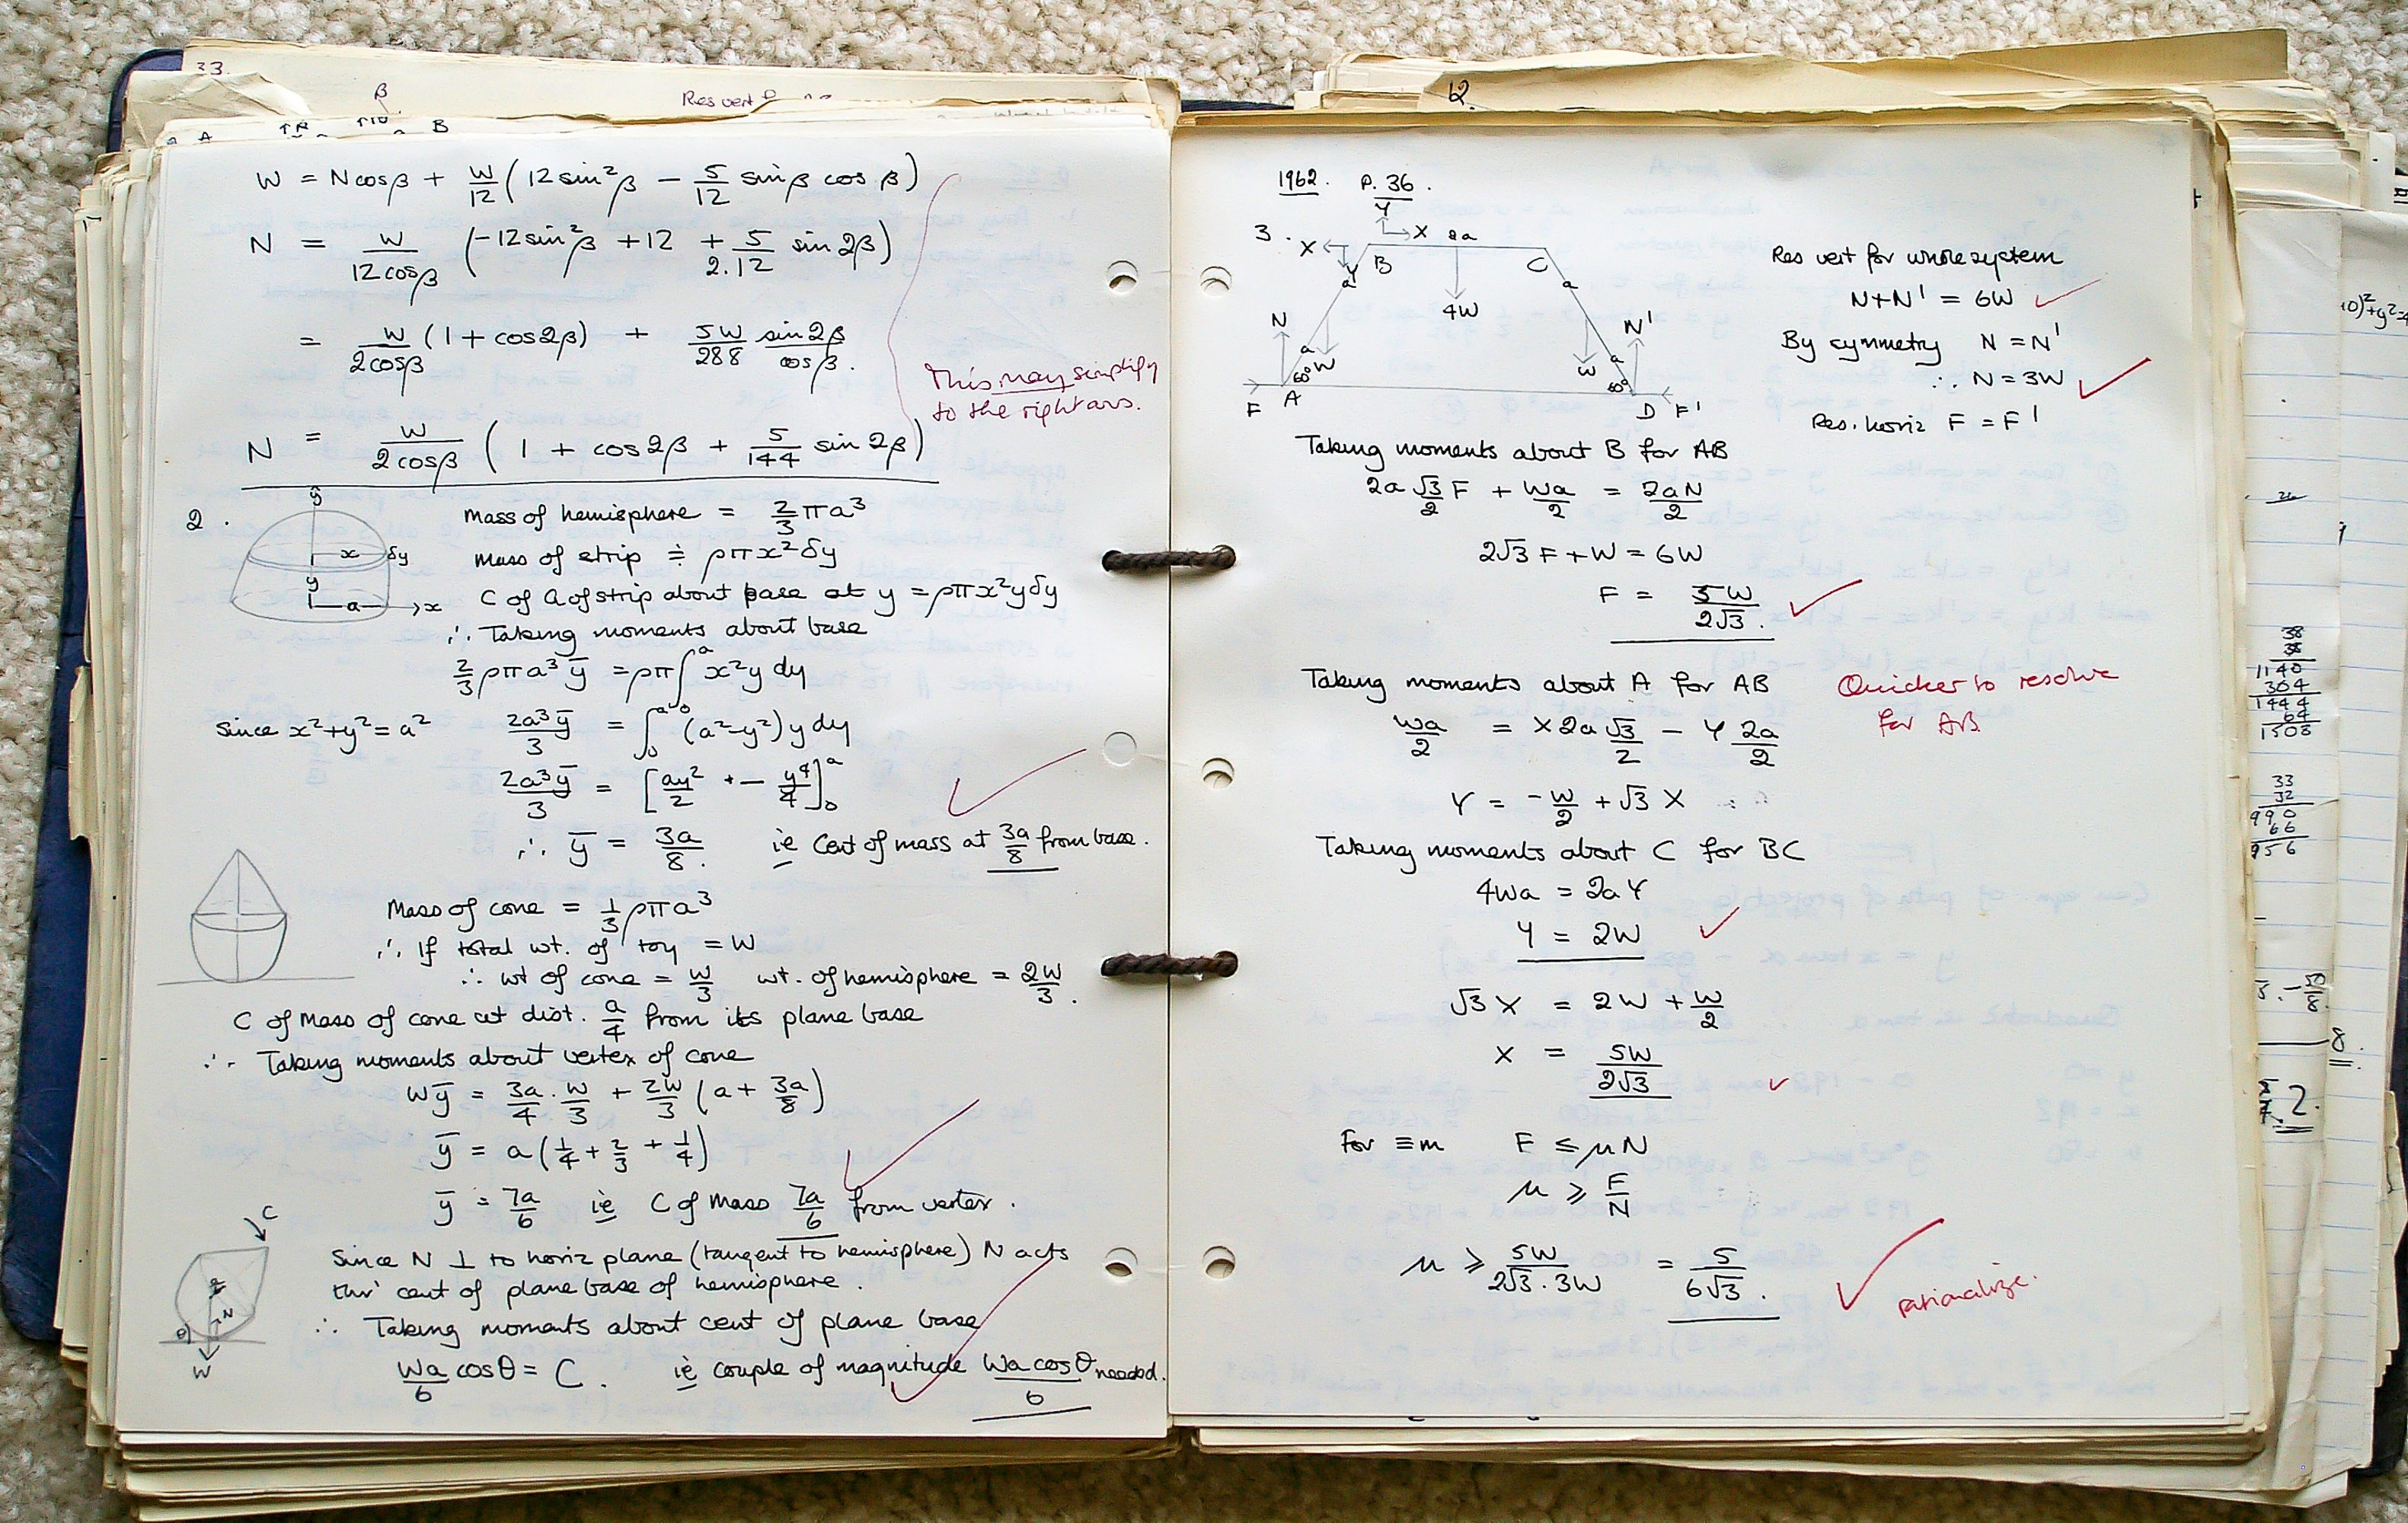 33.
β
Res vert
A
B
W = Ncosβ + W/12 (12sin²β − 5/12 sinβ cosβ)
N = W/12cosβ (−12sin²β + 12 + 5/2.12 sin2β)
= W/2cosβ (1 + cos2β) + 5W/288 sin2β/cosβ.
This may simplify
to the right ans.
N = W/2cosβ (1 + cos2β + 5/144 sin2β)
2.
ŷ
x
δy
y
a
x
Mass of hemisphere = 2/3 πa³
Mass of strip ≑ ρπx²δy
C of G of strip about base at y = ρπx²yδy
∴ Taking moments about base
2/3 ρπa³ȳ = ρπ∫₀ᵃ x²y dy
Since x²+y² = a² 2a³ȳ/3 = ∫₀ᵃ (a²−y²)y dy
2a³ȳ/3 = [ay²/2 + − y⁴/4]₀ᵃ
∴ ȳ = 3a/8. ie Cent of mass at 3a/8 from base.
Mass of cone = 1/3 ρπa³
∴ If total wt. of toy = W
∴ wt of cone = W/3 wt. of hemisphere = 2W/3.
C of Mass of cone at dist. a/4 from its plane base
∴ Taking moments about vertex of cone
Wȳ = 3a/4 . W/3 + 2W/3 (a + 3a/8)
ȳ = a(1/4 + 2/3 + 1/4)
ȳ = 7a/6 ie C of Mass 7a/6 from vertex.
C
N
θ
W
Since N ⊥ to horiz plane (tangent to hemisphere) N acts
thro' cent of plane base of hemisphere.
∴ Taking moments about cent of plane base
Wa/6 cosθ = C. ie couple of magnitude Wa cosθ/6 needed.
12.
1962. P. 36.
3.
Y
X
2a
X
Y
B
C
a
a
4W
N
N'
a
W
W
a
60°
60°
F
A
D
F'
Res vert for whole system
N+N' = 6W
By symmetry N = N'
∴ N = 3W
Res. horiz F = F'
Taking moments about B for AB
2a √3/2 F + Wa/2 = 2aN/2
2√3 F + W = 6W
F = 5W/2√3.
Taking moments about A for AB
Quicker to resolve
for AB
Wa/2 = X 2a √3/2 − Y 2a/2
Y = −W/2 + √3 X
Taking moments about C for BC
4Wa = 2aY
Y = 2W
√3 X = 2W + W/2
X = 5W/2√3
For ≡m F ≤ μN
μ ≥ F/N
μ ≥ 5W/2√3.3W = 5/6√3.
rationalize.
38
38
1140
304
1444
64
1508
33
32
990
66
956
8.
2.